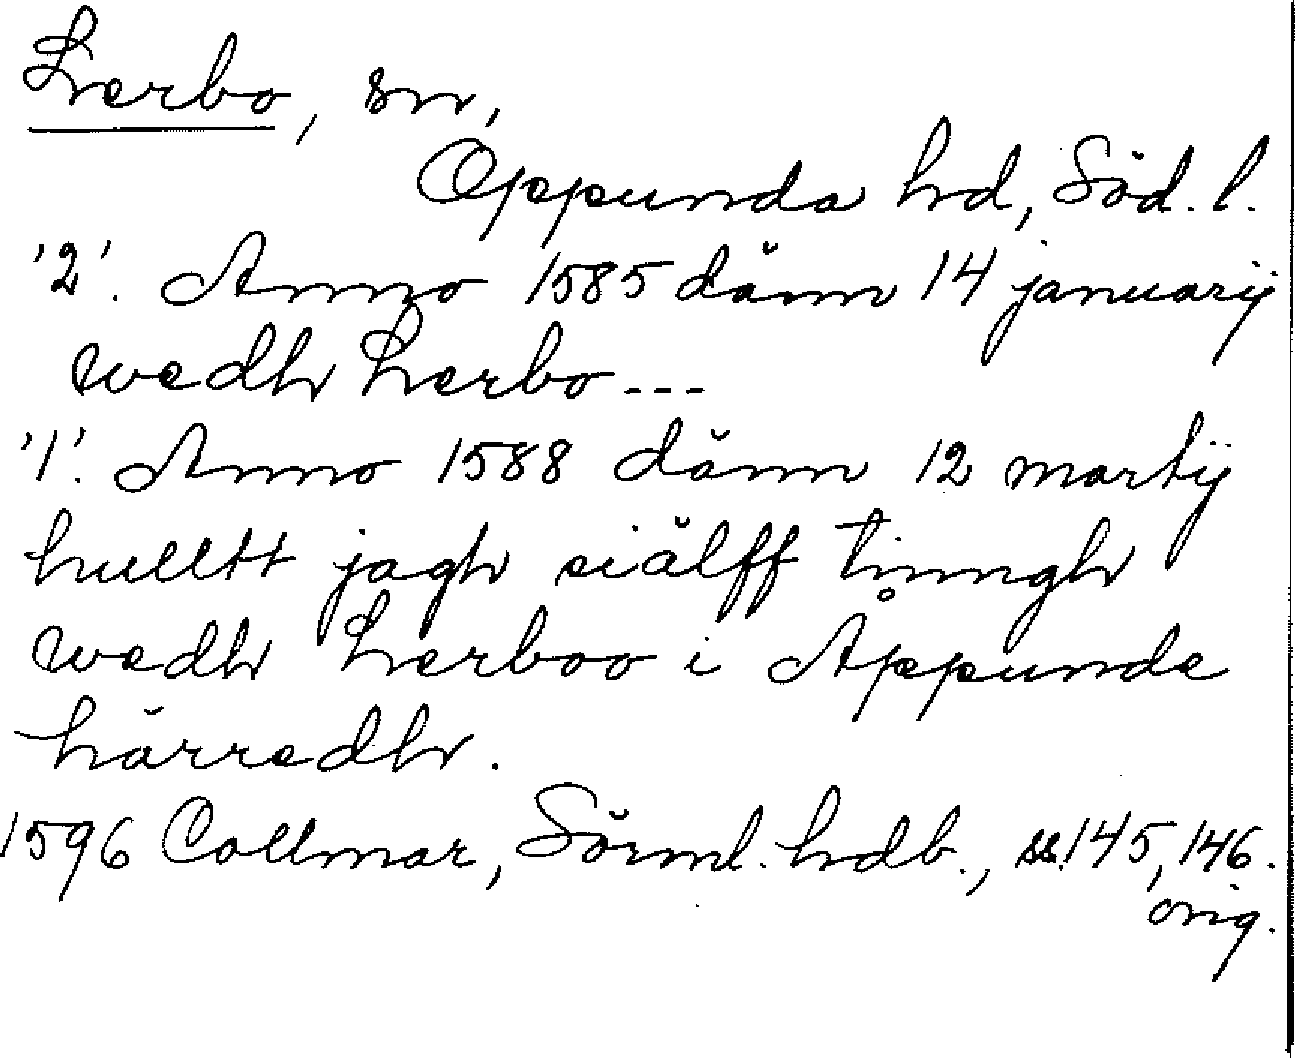 Lerbo, sn,
Oppunda hd, Söd. l.
'2'. Anno 1585 dänn 14 januarij
wedh Lerbo---
'1'. Anno 1588 dänn 12 martij
hulltt jagh siälff tinngh
wedh Lerboo i Åppunde
härredh.
1596 Collmar, Sörml. hdb., ss. 145, 146.
orig.